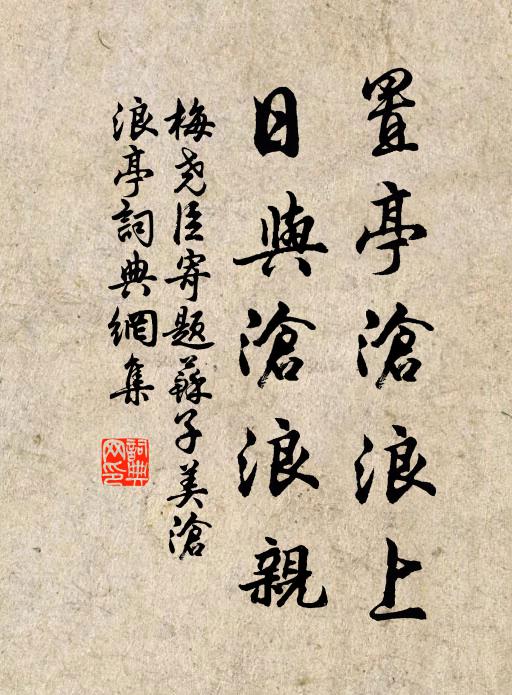 置亭滄浪上
日與滄浪親
梅尧臣寄題蘇子美滄
浪亭詞典網集
詞典
网印